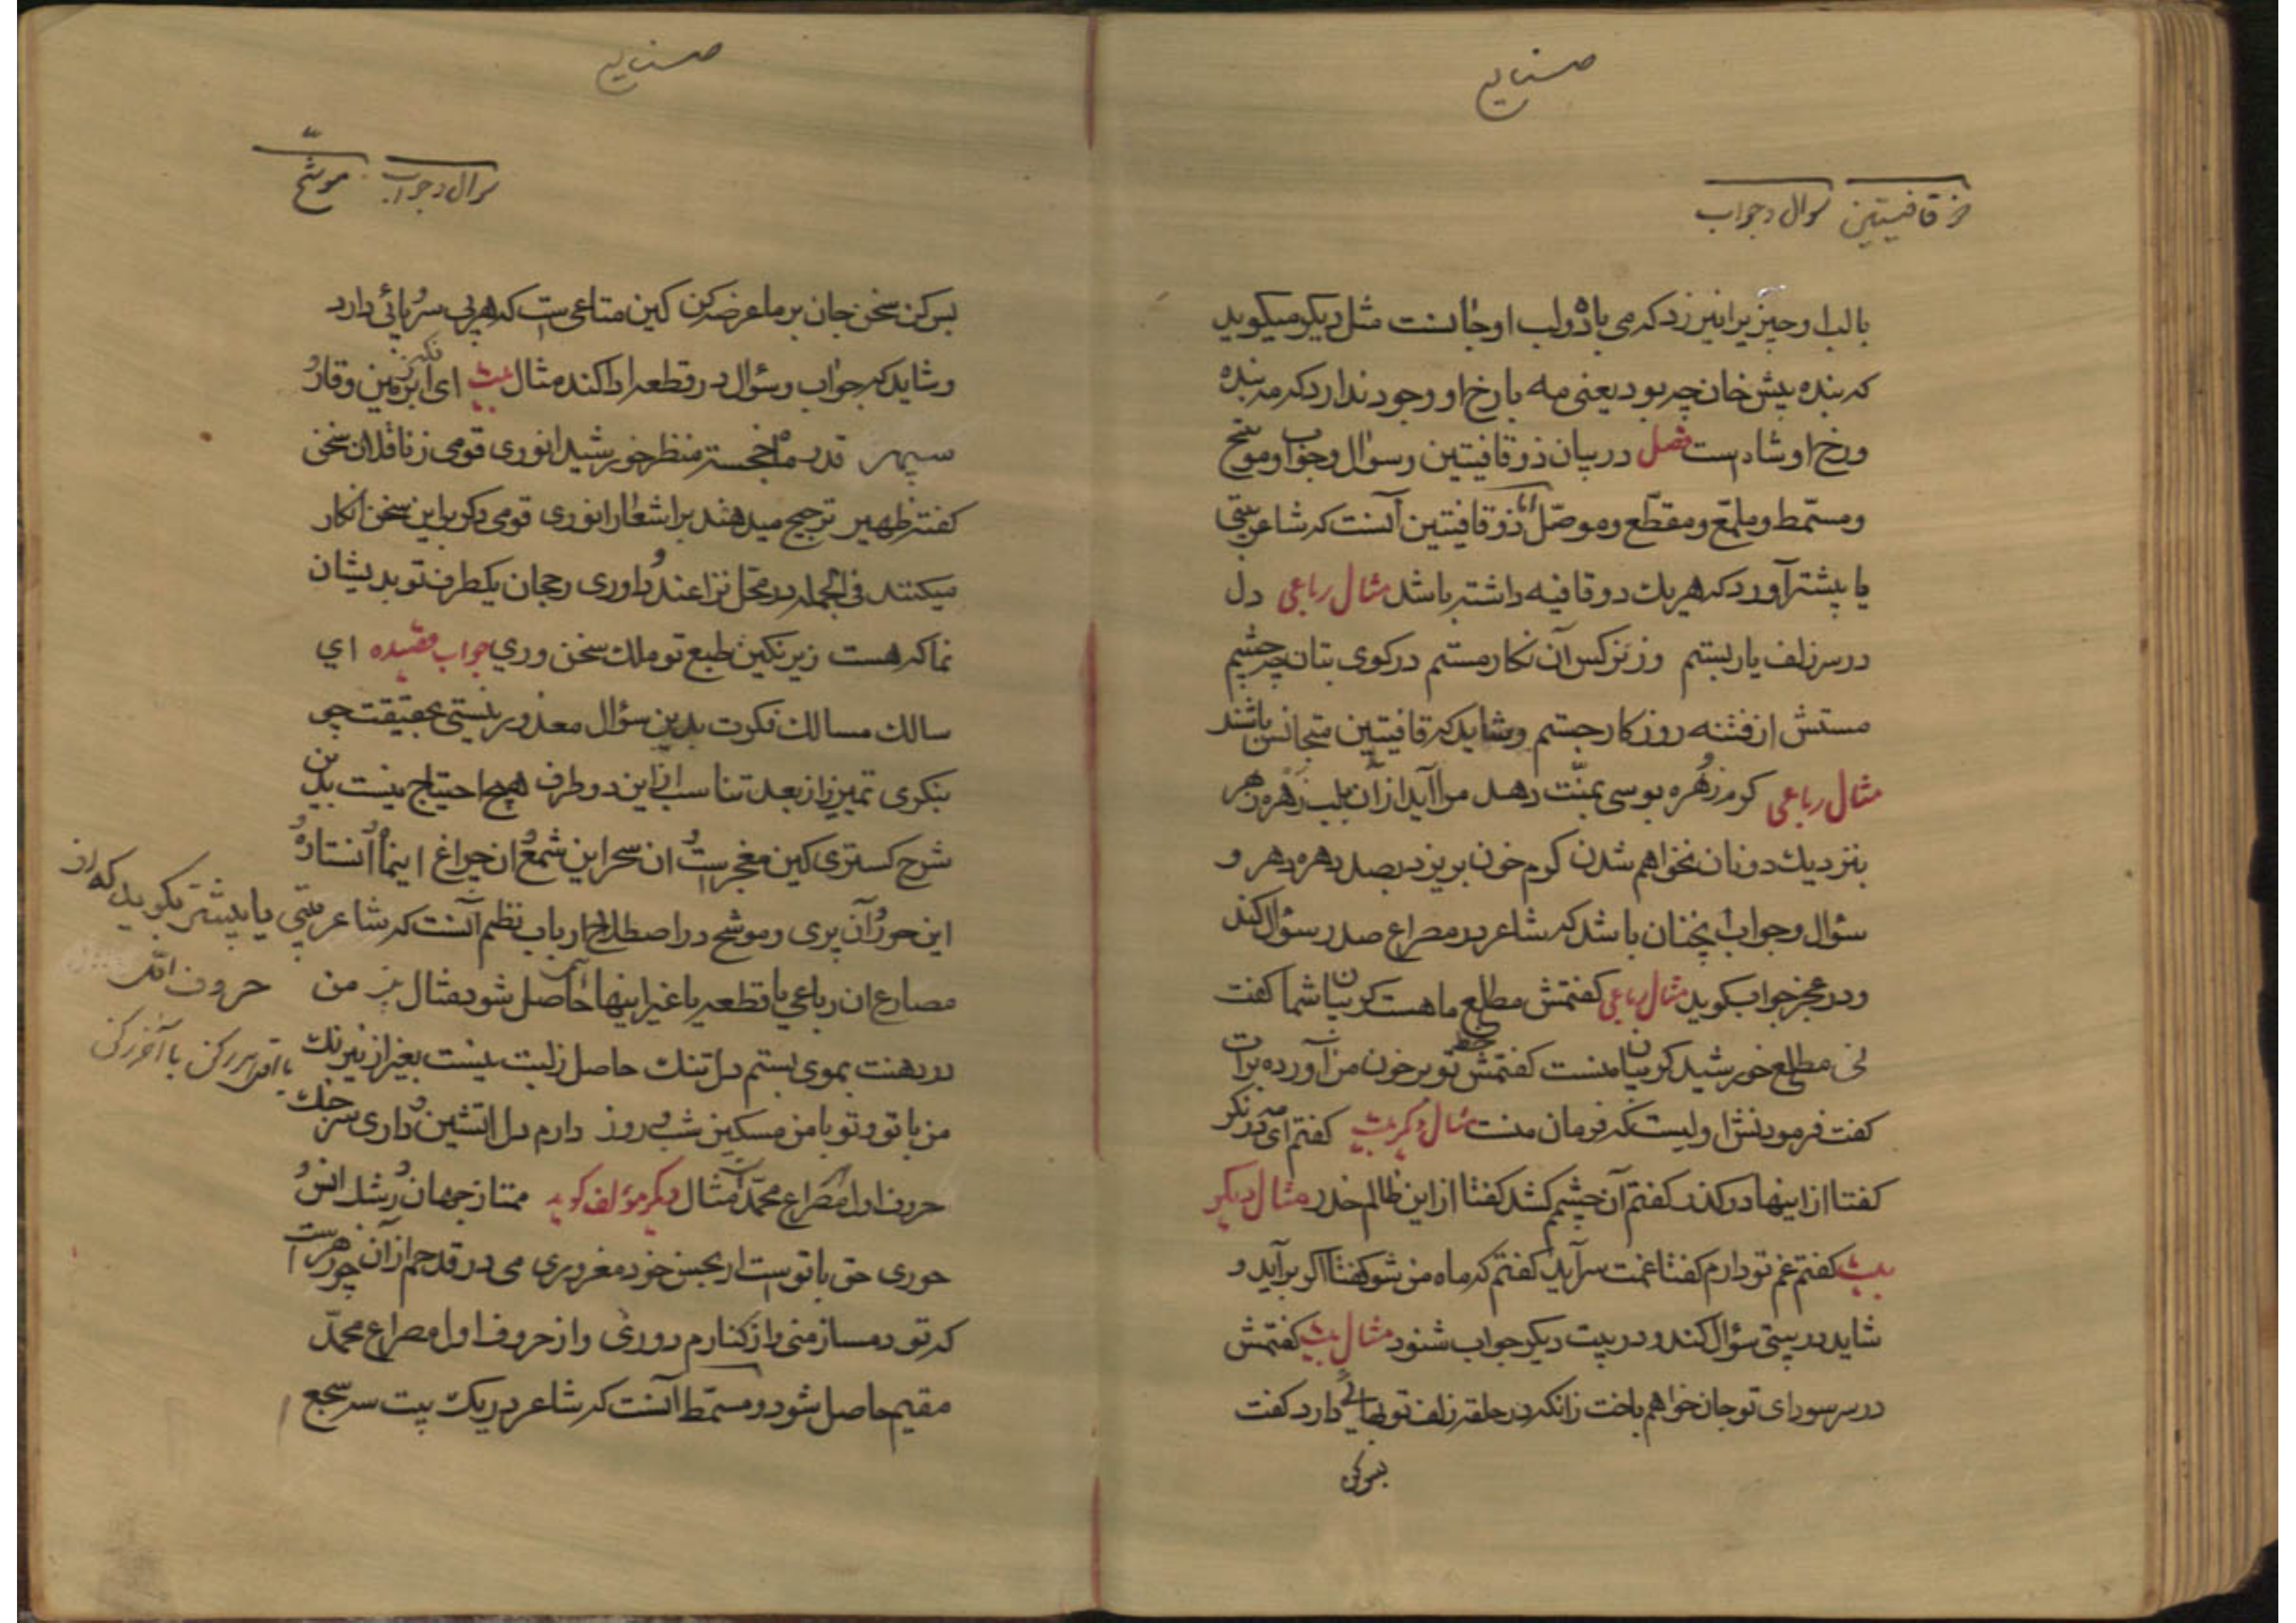 صنایع
ذو قافیتین سوال و جواب
با لب او چیز برابر نیز زد که می باده و لب او جانست مثل دیکر میکوید
که بنده پیش خان چه بود یعنی مه با رخ او وجود ندارد که مه بنده
و رخ او شاه است فصل در بیان ذو قافیتین و سوال و جواب و موشح
و مسمّط و ملمّع و مقطّع و موصّل اما ذو قافیتین آنست که شاعر بیتی
یا بیشتر آورد که هر یک دو قافیه داشته باشد مثال رباعی دل
در سر زلف یار بستم وز نرکس آن نکار مستم در کوی بتان چه چشم
مستش از فتنه روزکار جستم و شاید که قافیتین متجانس باشند
مثال رباعی کرم زهره بوسی بمنّت دهد مرا آید از آن بلب زهره زهر
بنزدیک دونان نخواهم شدن کرم خون بریزد بصد دهره دهر و
سؤال و جواب چنان باشد که شاعر در مصراع صدر سؤال کند
و در عجز جواب کوید مثال رباعی کفتمش مطلع ماهست کریبان شما کفت
نی مطلع خورشید کریبان منست کفتمش خط تو بر خون من آورده برات
کفت فرمودنش اولیست که فرمان منت مثال دکر بیت کفتم ای مه در نکر
کفتا از اینها در کذر کفتم آن چشم کشد کفتا از این ظالم حذر مثال دیکر
بیت کفتم غم تو دارم کفتا غمت سرآید کفتم که ماه من شو کفتا اکر برآید و
شاید در بیتی سؤال کند و در بیت دیکر جواب شنود مثال بیت کفتمش
در سر سودای تو جان خواهم باخت زانکه در حلقه زلف تو بهائی دارد کفت
بس کن
صنایع
سوال و جواب موشّح
بس کن سخن جان بر ما عرضه کن کین متاعی است که هر بی سر و پائی دارد
و شاید که جواب و سؤال در قطعه ادا کند مثال بیت ای زمین وقار و
سپهر قدر ماه خجسته منظر خورشید انوری قومی ز ناقدان سخن
کفته ظهیر ترجیح میدهند بر اشعار انوری قومی دکر بر این سخن انکار
میکنند فی الجمله در محل نزاعند و داوری رجحان یکطرف تو بدیشان
نما که هست زیر نکین طبع تو ملک سخن وری جواب قصیده ای
سالک مسالک فکرت بدین سؤال معذور نیستی بحقیقت چی
بنکری تمییز را ز بعد تناسب این دو طرف هیچ احتیاج نیست بدین
شرح کستری کین معجز است و ان سحر این شمع و ان چراغ این ماه و آن ستاره و
این حور و آن پری و موشح در اصطلاح ارباب نظم آنست که شاعر بیتی یا بیشتر بکوید که از
حروف اول
مصارع ان رباعی یا قطعه یا غیر اینها حاصل شود مثال من
یا اول هر رکن یا آخر رکن
در دهنت بموی بستم دل تنک حاصل زلبت نیست بغیر از نیرنک
من با تو و تو با من مسکین شب و روز دارم دل اتشین و داری سر جنک
حروف اول مصراع محمّد مثال دیکر مؤلف کوید ممتاز جهان و رشد انس و
حوری حق با تو است ار بحسن خود مغروری می در قدحم از آن چو زهر است
که تو دمساز منی و از کنارم دوری و از حروف اول مصراع محمّد
مقیم حاصل شود و مسمّط آنست که شاعر در یک بیت سه سجع